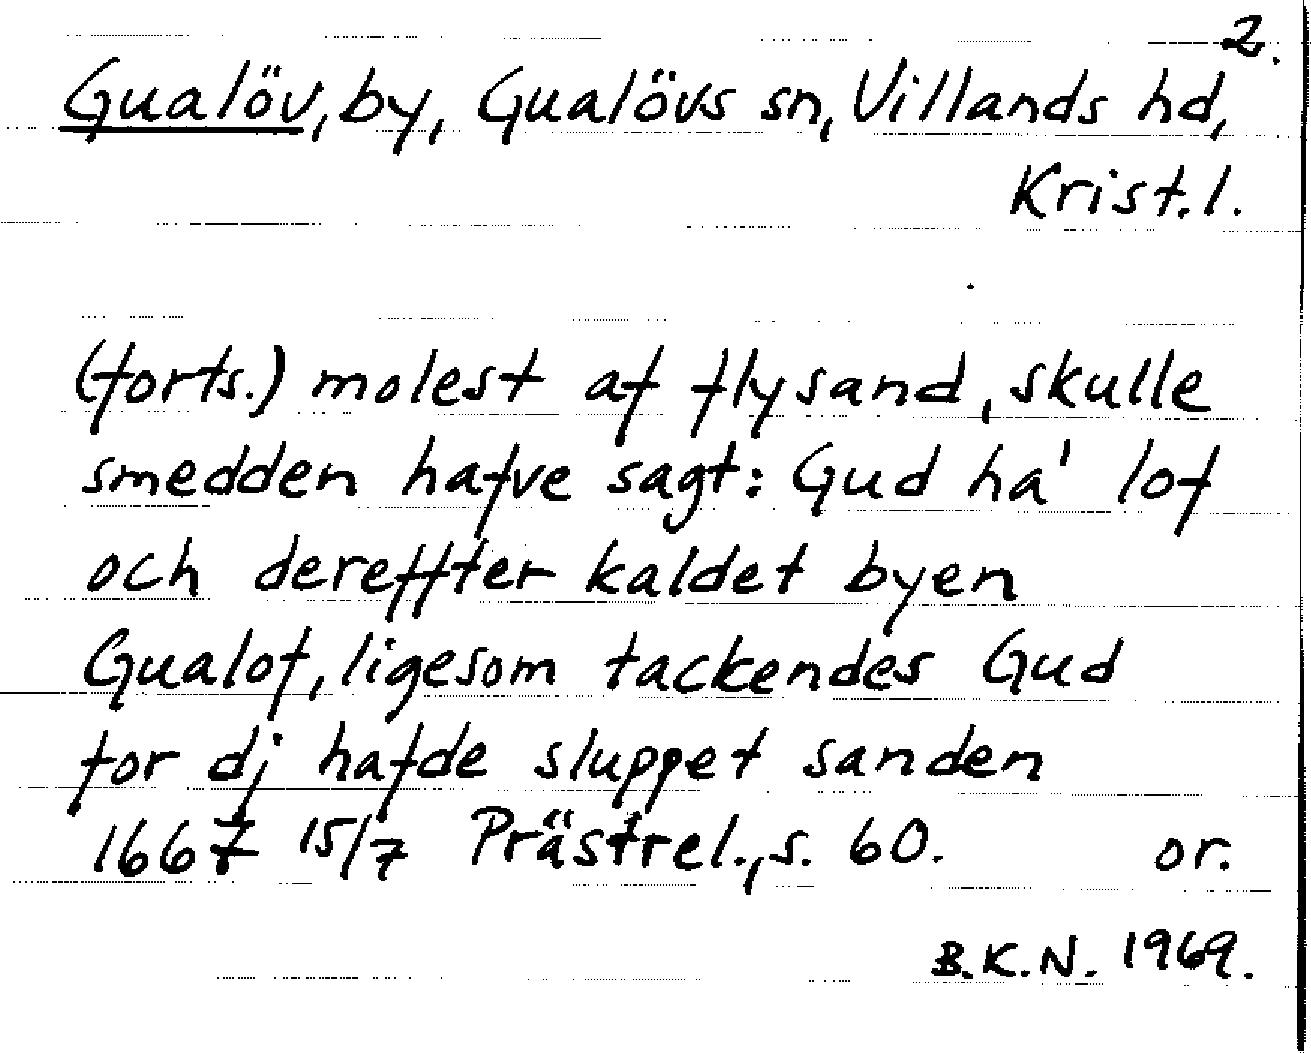 2.
Gualöv, by, Gualövs sn, Villands hd,
Krist.l.
(forts.) molest af flysand, skulle
smedden hafve sagt: Gud ha' lof
och dereffter kaldet byen
Gualof, ligesom tackendes Gud
for dj hafde sluppet sanden
1667 15/7 Prästrel., s. 60. or.
B.K.N. 1969.